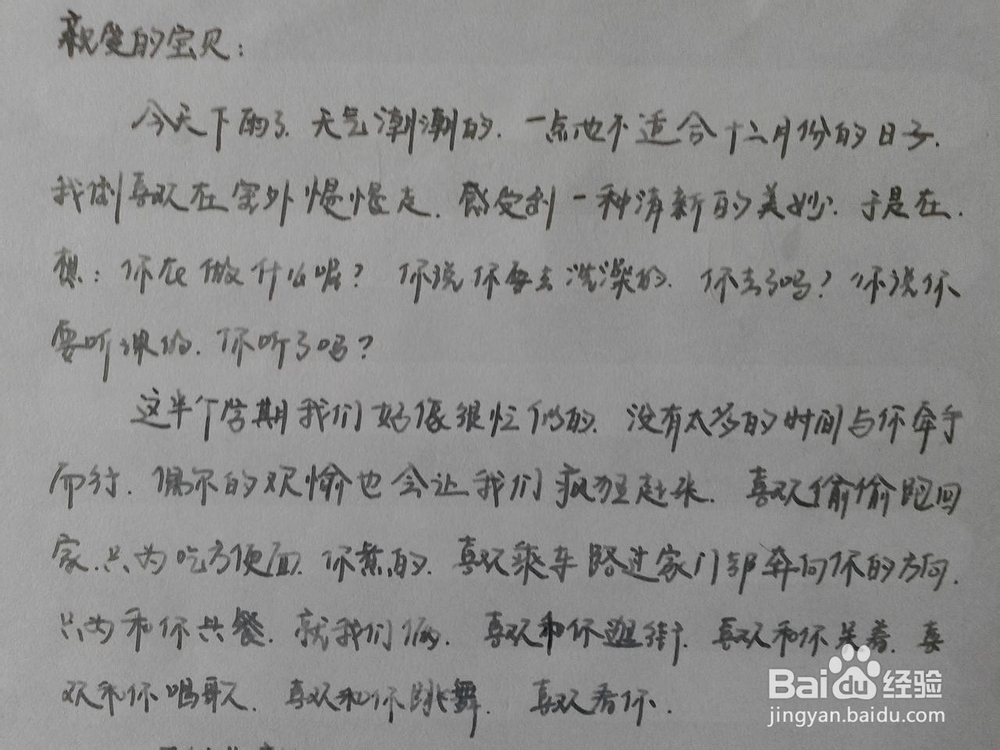 亲爱的宝贝：
今天下雨了.天气潮潮的.一点也不适合十二月份的日子.
我倒喜欢在室外慢慢走.感受到一种清新的美妙.于是在.
想：你在做什么呢？你说你要去洗澡的.你去了吗？你说你
要听课的.你听了吗？
这半个学期我们好像很忙似的.没有太多的时间与你牵手
而行.偶尔的欢愉也会让我们疯狂起来.喜欢偷偷跑回
家.只为吃方便面.你煮的.喜欢乘车路过家门却奔向你的方向.
只为和你共餐.就我们俩.喜欢和你逛街.喜欢和你笑着.喜
欢和你唱歌.喜欢和你跳舞.喜欢看你.
Baidu经验
jingyan.baidu.com